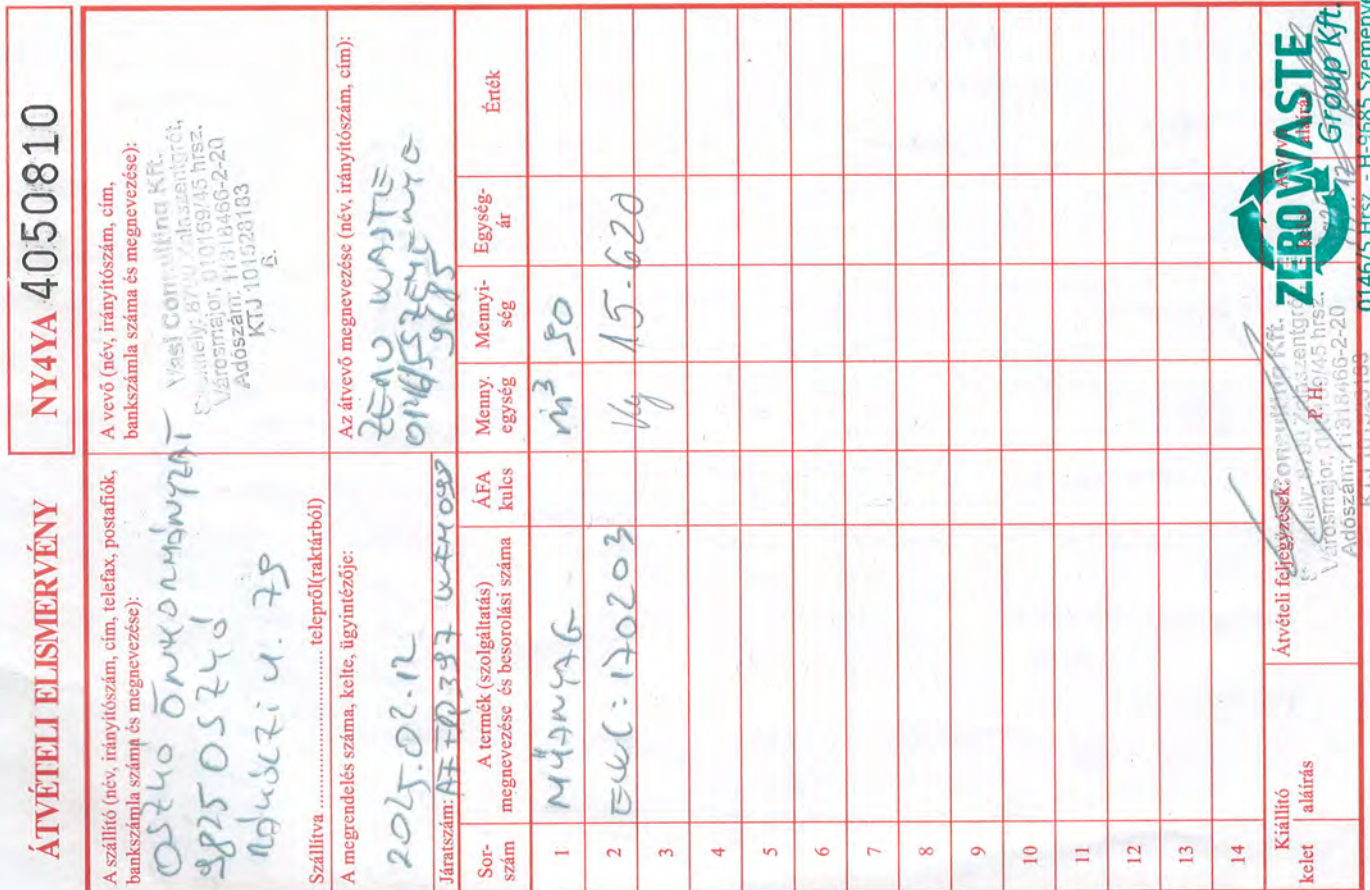 ÁTVÉTELI ELISMERVÉNY
NY4YA 4050810
A szállító (név, irányítószám, cím, telefax, postafiók,
bankszámla száma és megnevezése):
OSZKÓ ÖNKORMÁNYZAT
9825 OSZKÓ
RÁKÓCZI U. 75
Szállítva ........................ telepről(raktárból)
A vevő (név, irányítószám, cím,
bankszámla száma és megnevezése):
Vasi Consulting Kft.
Székhely: 8790 Zalaszentgrót,
Városmajor, 010159/45 hrsz.
Adószám: 11318466-2-20
KTJ 101528183
6.
A megrendelés száma, kelte, ügyintézője:
2025.02.12
Járatszám:
Az átvevő megnevezése (név, irányítószám, cím):
ZERO WASTE
9685
Sor-
szám
A termék (szolgáltatás)
megnevezése és besorolási száma
ÁFA
kulcs
Menny.
egység
Mennyi-
ség
Egység-
ár
Érték
1 MŰANYAG m³ 50
2 EWC: 170203 Kg 15.620
3
4
5
6
7
8
9
10
11
12
13
14
Kiállító
kelet aláírás
Átvételi feljegyzések:
P. H.
Városmajor, 010159/45 hrsz.
Adószám: 11318466-2-20
ZERO WASTE
Group Kft.
0146/5 Hrsz - H-9685 Szemenye